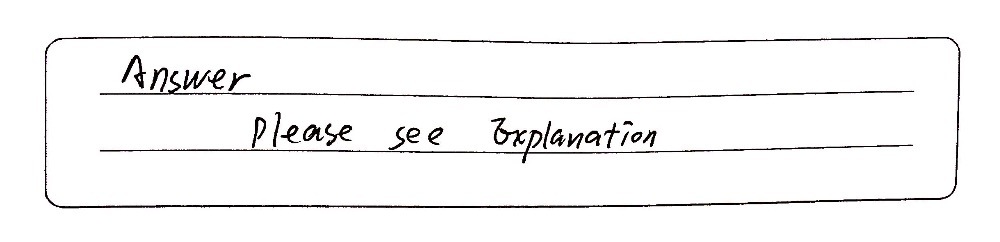 Answer
Please see Explanation